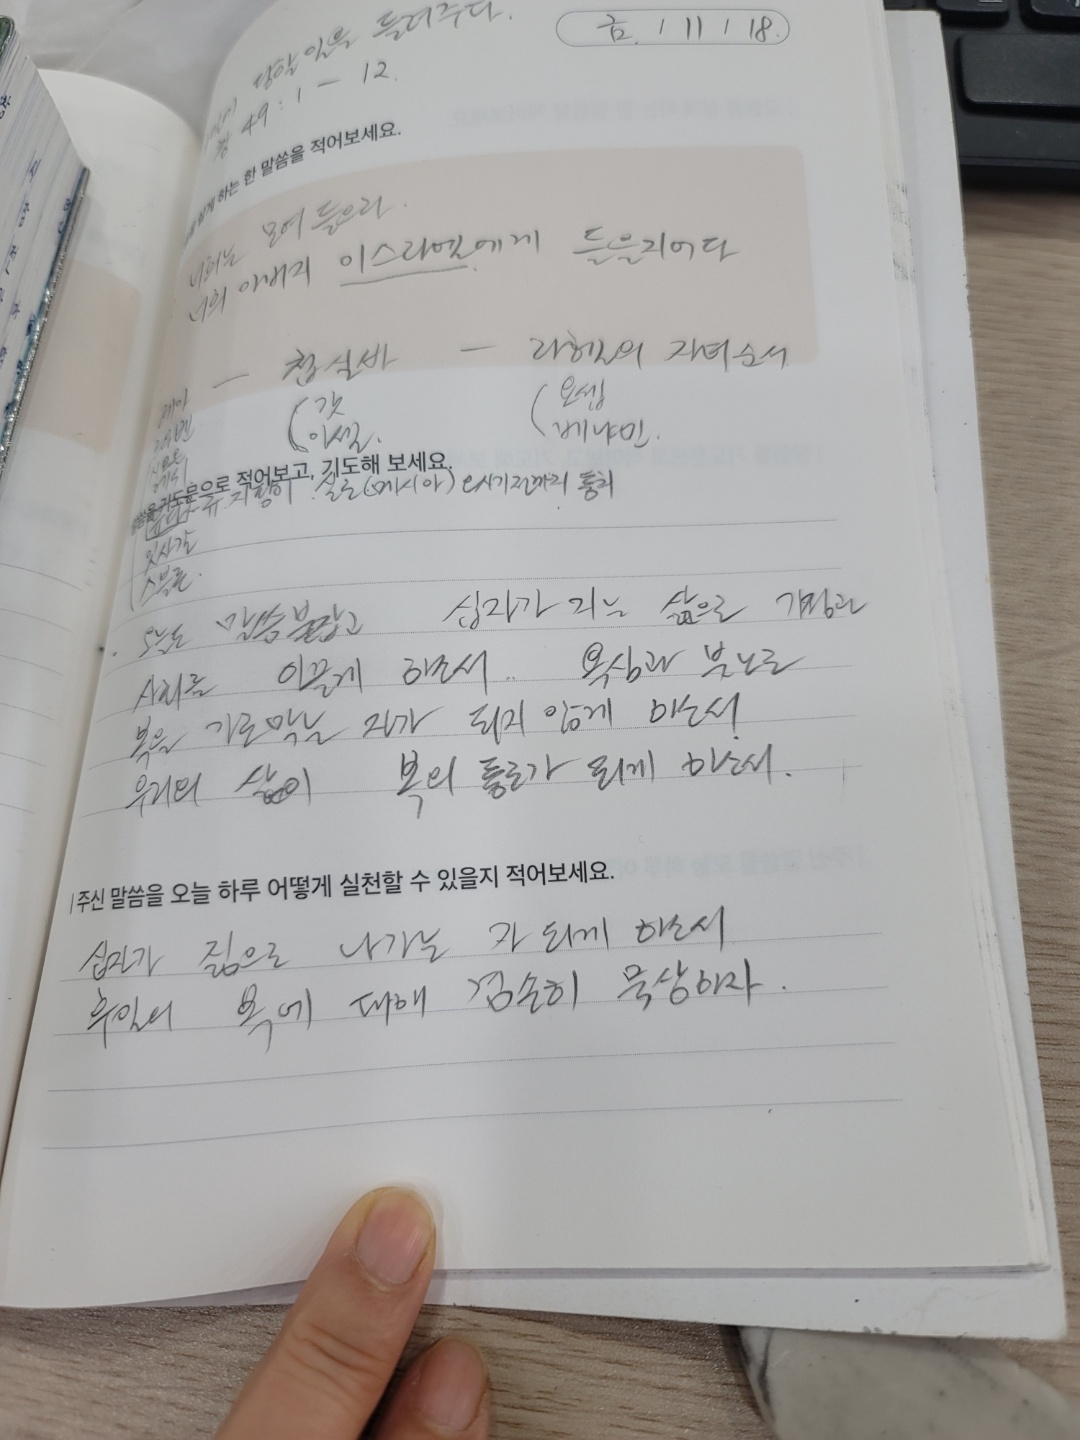 당할 일을 들려주다.
금 / 11 / 18.
창 49 : 1 - 12.
하는 한 말씀을 적어보세요.
너희는 모여 들으라.
너희 아버지 이스라엘에게 들을지어다
첩 실바 - 라헬의 자녀순서
레아
르우벤
시므온
레위
(갓
아셀.
(요셉
베냐민.
기도문으로 적어보고, 기도해 보세요.
유다 - 유 지팡이 실로(메시아) 오시기전까지 통치
잇사갈
스불론.
. 오늘도 말씀붙잡고 십자가 지는 삶으로 가정과
사회를 이끌게 하소서.. 욕심과 분노로
복을 가로막는 자가 되지 않게 하소서.
우리의 삶이 복의 통로가 되게 하소서.
주신 말씀을 오늘 하루 어떻게 실천할 수 있을지 적어보세요.
십자가 짊으로 나가는 자 되게 하소서
후일의 복에 대해 겸손히 묵상하자.